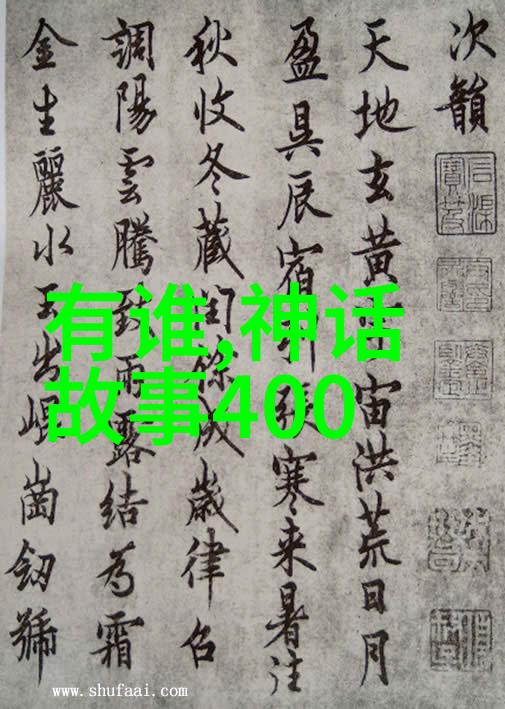 次韻
天地玄黄宇宙洪荒日月
盈昃辰宿列張寒来暑往
秋收冬藏閏餘成歲律吕
調陽雲騰致雨露結為霜
金生麗水玉出崐崗劒號
有谁,神话
故事400
www.shufaai.com